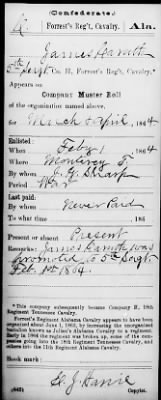 (Confederate.)
Forrest's Reg't, Cavalry. Ala.
James
5th Sergt, Co. H, Forrest's Reg't, Cavalry.*
Appears on
Company Muster Roll
of the organization named above,
for March & April, 1864
Enlisted:
When Feby 1, 1864
Where Monterey
By whom J. G. Sharp
Period War
Last paid:
By whom Never Paid
To what time , 186
Present or absent Present
Remarks: James was
promoted to 5th Sergt
Feb. 1st 1864.
*This company subsequently became Company H, 18th
Regiment Tennessee Cavalry.
Forrest's Regiment Alabama Cavalry appears to have been
organized about June 1, 1863, by increasing the reorganized
battalion known as Julian's Alabama Cavalry to a regiment.
Early in 1864 the regiment was broken up, some of the com-
panies going into the 18th Regiment Tennessee Cavalry, and
others into the 11th Regiment Alabama Cavalry.
Book mark:
(642)
Copyist.